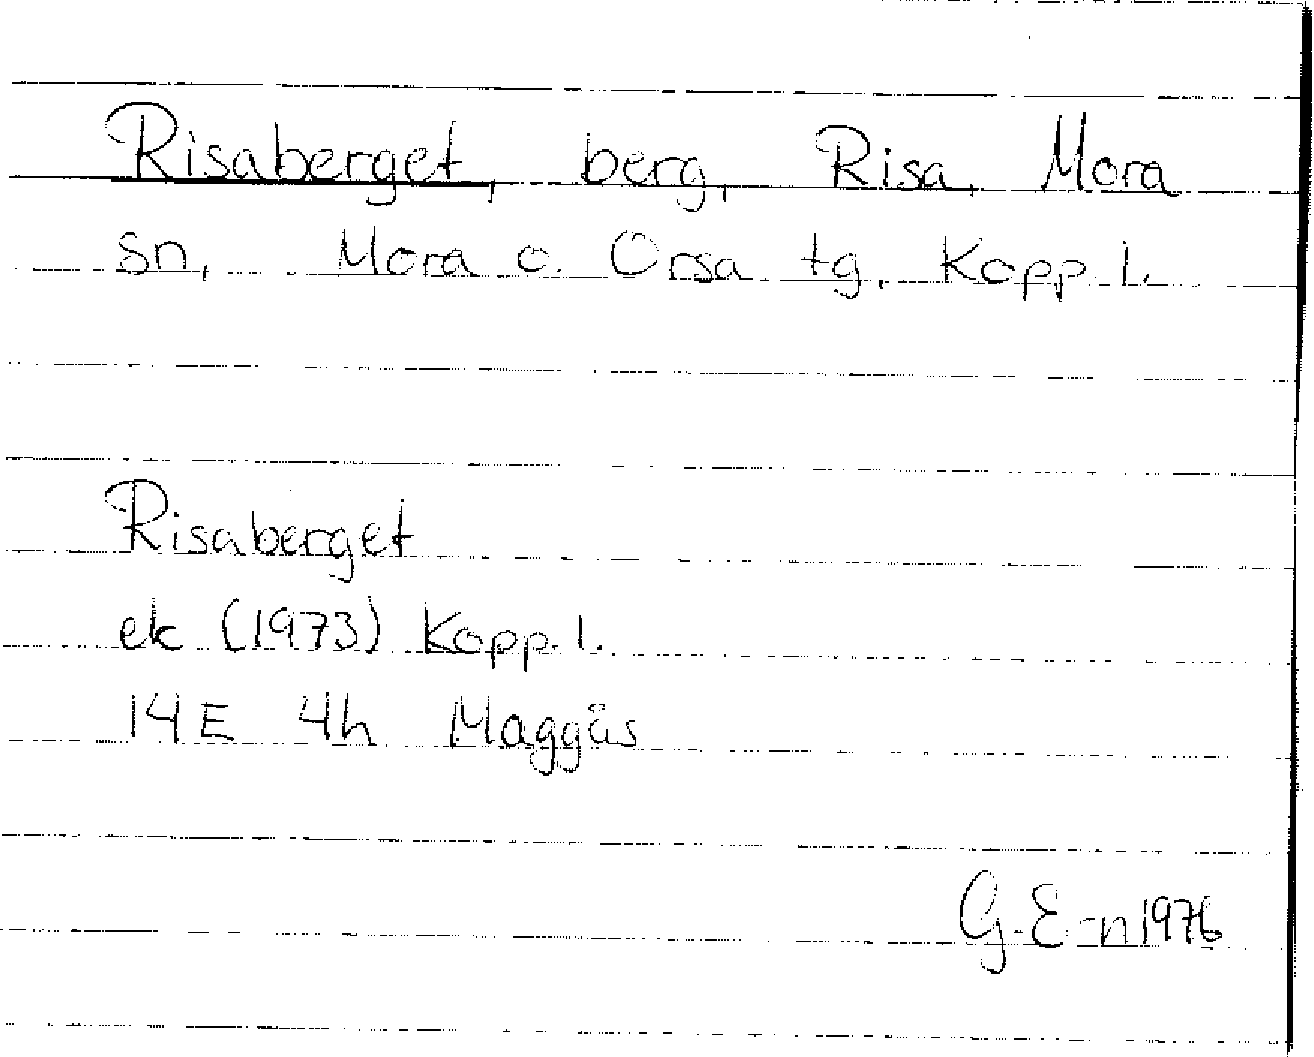 Risaberget, berg, Risa, Mora
sn, Mora o. Orsa tg, Kopp. l.
Risaberget
ek (1973) Kopp. l.
14E 4h Maggås
G. E-n 1976